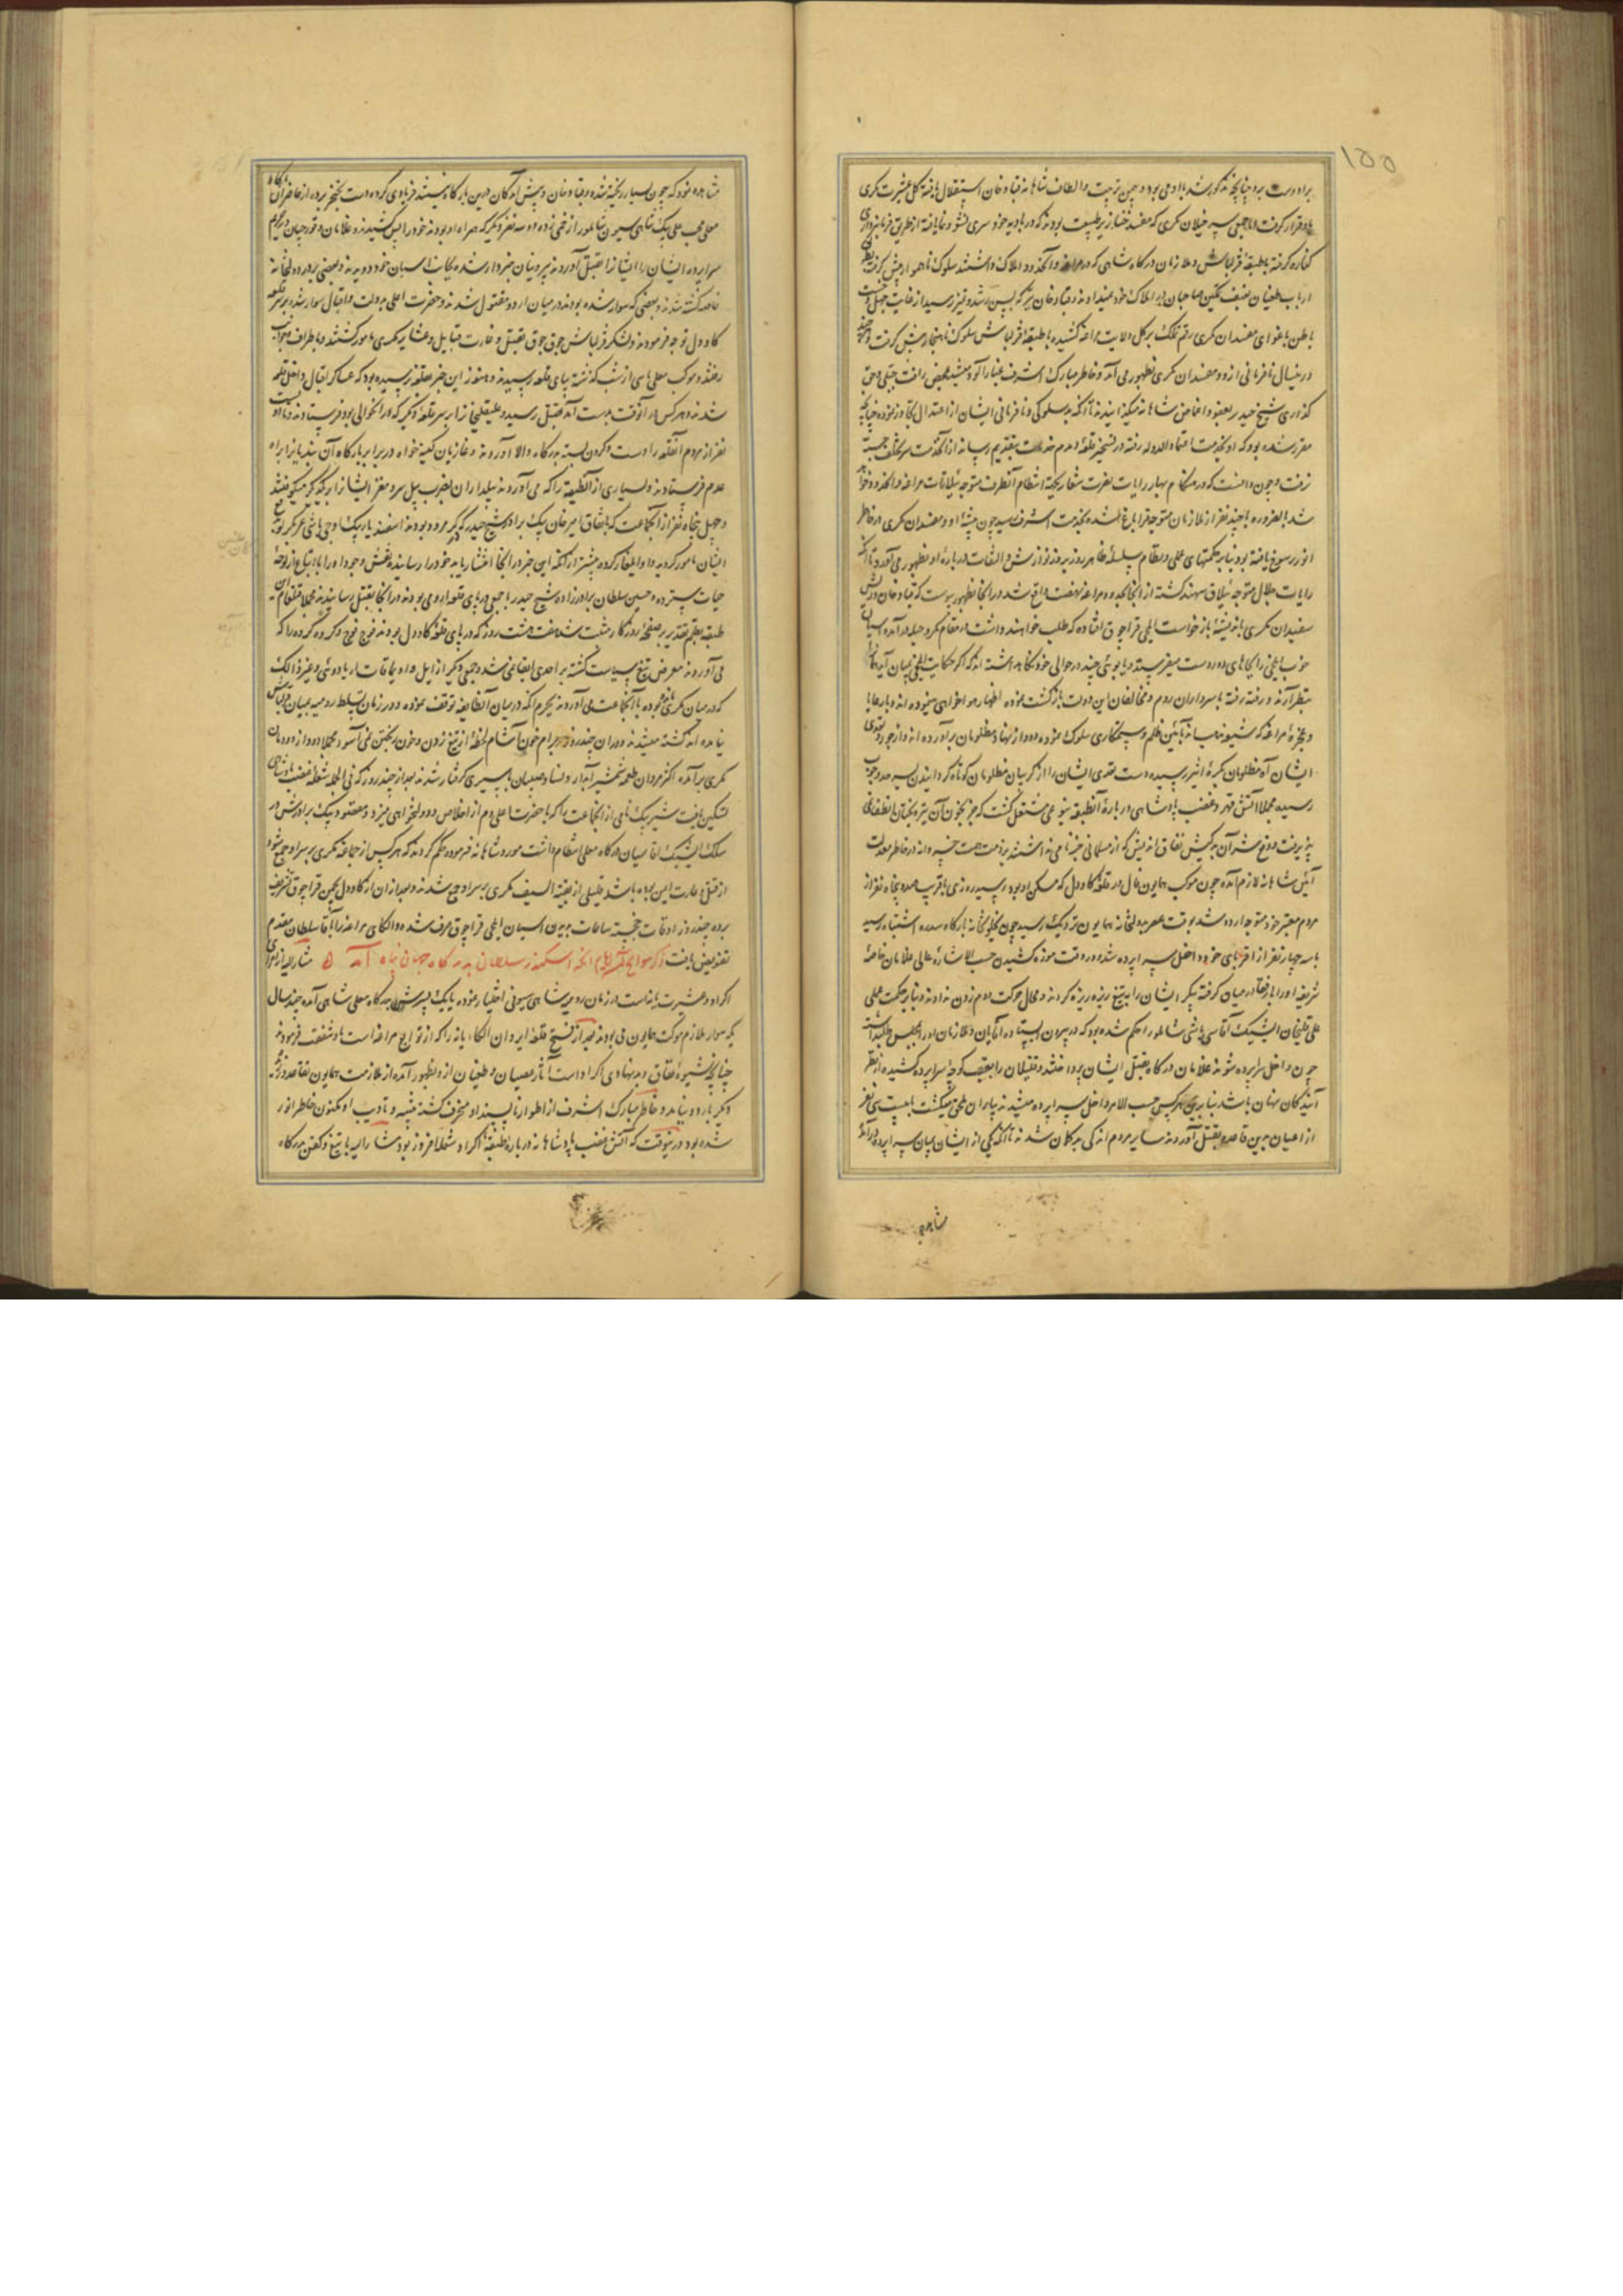 ۱۵۵
برادرست برد چنانچه مذکور شد با او می بود و بیمن تربیت و الطاف شاهانه قباد خان استقلال یافته کل عشیرت مکری
باو قرار گرفت اما جمعی سپه خیلان مکری که مفسد خنازیر طبیعت بودند که در بادیه خود سری نشو و نما یافته از طریق فرمانبرداری
کناره گرفته با طبقه قزلباش و ملازمان درگاه شاهی که در مراغه و آنحدود املاک داشتند سلوک ناهموار پیش گرفتند
ارباب طغیان ضعف تمکین صاحبان در املاک خود نمیدادند و قباد خان نیز که بسن رشد و تمیز رسید از غایت جهل و
باطن باغوای مفسدان مکری رقم تملک بر کل ولایت مراغه کشیده با طبقه قزلباش سلوک ناهنجار پیش گرفت و
درینسال نافرمانی از و و مفسدان مکری بظهور می آمد و خاطر مبارک اشرف غبار آلود میشد محض رافت جبلی و حق
گذاری شیخ حیدر بعفو و اغماض شاهانه میگذرانیدند تا آنکه بدسلوکی و نافرمانی ایشان از اعتدال تجاوز نموده چنانچه
مقرر شده بود که او بخدمت اعتماد الدوله رفته در تسخیر قلعه دمدم خدمات بتقدیم رساند از آنخدمت سر تخلف
نرفت و چون دانست که در هنگام بهار رایات نصرت شعار بجهة انتظام آنطرف متوجه ییلاقات مراغه و آنحدود خواهد
شد بالضروره با چند نفر از ملازمان متوجه قراباغ شده بخدمت اشرف رسید چون منشاء او و مفسدان مکری در خاطر
انور رسوخ یافته بود بنابر حکمتهای عملی و نظام سلسله ظاهر روز بروز نوازش و التفات درباره او بظهور می آورد تا آنکه
رایات جلال متوجه ییلاق سهند گشته از آنجا بحدود مراغه نهضت واقع شد در آنجا بظهور پیوست که قباد خان و ریش
سفیدان مکری باندیشه بازخواست ایلخی قراچوق افتاده که طلب خواهند داشت در مقام مکر و حیله درآمده اسبان
خوب ایلخی را بجاهای دور دست میفرستند و یابوئی چند در حوالی خود نگاه داشته اند که اگر حکایت ایلخی بمیان آید آنها را
بنظر آرند و رفته رفته با سرداران روم و مخالفان این دولت بازگشت نموده اظهار هواخواهی مینموده اند و با رعایا
و عجزه مراغه که شیعه مذهب اند بآئین ظلم و ستمکاری سلوک نموده دود از نهاد مظلومان برآورده اند و از جور و تعدی
ایشان آه مظلومان بکره اثیر رسیده دست تعدی ایشان را از گریبان مظلومان کوتاه گردانیدن بسرحد وجوب
رسیده مجملا آتش قهر و غضب پادشاهی درباره آنطبقه بنوعی مشتعل گشت که جز بخون آن تیره بختان انطفا نمی
پذیرفت و دفع شر آن بدکیش نفاق اندیش که از مسلمانی جز نامی نداشتند بر ذمت همت خسروانه در خاطر معدلت
آئین شاهانه لازم آمده چون موکب همایون فال در قلعه کاودول که مسکن او بود رسید روزی با قریب صد و پنجاه نفر از
مردم معتبر خود متوجه اردو شد بوقت عصر بدولتخانه همایون نزدیک رسید چون بجلوخانه بارگاه سدره اشتباه رسید
با سه چهار نفر از اقربای خود داخل سرا پرده شد و در وقت موزه کشیدن حسب الاشاره عالی غلامان خاصه
شریفه او را با رفقا در میان گرفته پیکر ایشان را به تیغ ریزه ریزه کردند و مجال حرکت و دم زدن ندادند و بنابر حکمت عملی
علی قلیخان ایشیک آقاسی باشی شاملو را حکم شده بود که در بیرون ایستاده آقایان و ملازمان او را بمجلس طلبد
چون داخل سراپرده شوند غلامان درگاه بقتل ایشان پرداختند و قتیلان را بعقب کوچه سراپرده کشیده از نظر
آیندگان پنهان باشد بنابرین هرکس حسب الامر داخل سراپرده میشد بیاران ملحق میگشت تا بیست سی نفر
از اعیان بدین قاعده بقتل آوردند سایر مردم اندکی بدگمان شدند تا آنکه یکی از ایشان بمیان سراپرده درآمد
مشاهده
مشاهده نمود که چون بسیار ریخته شده و قباد خان و پیش آمدگان درین بارگاه نیستند فریادی کرده دست بخنجر برده از حاضران
معلی محب علی بیک شاهی سیون شاملو را زخمی زد و دو سه نفر دیگر که همراه او بودند خود را پس کشیدند و غلامان و قورچیان در حریم
سراپرده ایشان را بقتل آوردند بیرونیان خبردار شده بجانب اسبان خود دویدند و بعضی بر در دولتخانه
خاصه کشته شدند و بعضی که سوار شده بودند در میان اردو مقتول شدند و حضرت اعلی بدولت و اقبال سوار شده بر سر قلعه
کاودول توجه فرمودند و لشکر قزلباش جوق جوق بقتل و غارت قبایل و عشایر مکری مامور گشتند و باطراف و جوانب
رفتند و موکب معلی پاسی از شب گذشته بپای قلعه رسیدند و هنوز این خبر بقلعه نرسیده بود که عساکر اقبال داخل قلعه
شدند و هرکس در آنوقت بدست آمد بقتل رسید و علیقلیخان را بر سر قلعه دیگر که در آنحوالی بود فرستادند و او
نفر از مردم آنقلعه را دست و گردن بسته بدرگاه والا آوردند و غازیان کینه خواه در برابر بارگاه آن
عدم فرستادند و بسیاری از آنطبقه را که می آوردند بیلداران بضرب بیل سر و مغز ایشان را بر یکدیگر میکوفتند
و چهل پنجاه نفر از آنجماعت که باتفاق امیر خان بیک برادر شیخ حیدر که
ایشان مامور گردید و او ایلغار کرده پیشتر از آنکه این خبر در آنجا انتشار یابد خود را رسانیده نقش وجود او را با اتباع از لوحه
حیات سترده و حسین سلطان برادرزاده شیخ حیدر با جمعی در پای قلعه اورومی بودند در آنجا بقتل رسانیدند مجملا قتل عام آن
طبقه بقلم تقدیر بر صفحه روزگار ثبت شد هفت هشت روز که در پای قلعه کاودول بودند فوج فوج و گروه گروه را که
می آوردند معرض تیغ سیاست گشته بر احدی ابقا نمی شد و جمعی دیگر از ایل و اویماقات
که در میان مکری بوده با آنجماعت می آوردند بجرم آنکه در میان آن طایفه توقف نموده و در زمان تسلط رومیه بمیان قزلباش
نیامده اند کشته میشدند و در آن چند روز بهرام خون آشام لحظه از تیغ زدن و خون ریختن نمی آسود مجملا دود از دودمان
مکری برآمده اکثر مردان طعمه شمشیر آبدار و نساء و صبیان باسیری گرفتار شدند بعد از چند روز که فی الجمله شعله غضب پادشاهی
تسکین یافت شیر بیک نامی از آنجماعت را که با حضرت اعلی دم از اخلاص و دولتخواهی میزد و مقصود بیک برادرش در
سلک ایشیک آقاسیان درگاه معلی انتظام داشت مورد شاهانه فرموده حکم کردند که هرکس از جماعه مکری بر سر او جمع شود
از قتل و غارت ایمن بوده باشد قلیلی از بقیة السیف مکری بر سر او جمع شدند و بعد از آن از کاودول بچمن قراچوق تشریف
برده چند روز اوقات خجسته ساعات بدیدن اسبان ایلخی قراچوق صرف شد و الکای مراغه را بآقا سلطان مقدم
تفویض یافت ذکر سوانح ایام آنکه اسکندر سلطان بدرگاه جهان پناه آمد مشار الیه از امرای
اکراد و عشیرت بانه است در زمان رومیه شاهی سیونی اختیار نموده با یک پسرش بدرگاه معلی شاهی آمده چند سال
یکه سوار ملازم موکب همایون می بودند بعد از فتح قلعه ایروان الکاء بانه را که از توابع مراغه است باو شفقت فرمودند
چنانچه شیوه نفاق و بدنهادی اکراد است آثار عصیان و طغیان ازو بظهور آمده از ملازمت همایون تقاعد ورزیده
دیگر باردو نیامد و خاطر مبارک اشرف از اطوار ناپسند او منحرف گشته تنبیه و تادیب او مکنون خاطر انور
شده بود درینوقت که آتش غضب پادشاهانه درباره طبقه اکراد شعله افروز بود مشار الیه با تیغ و کفن بدرگاه